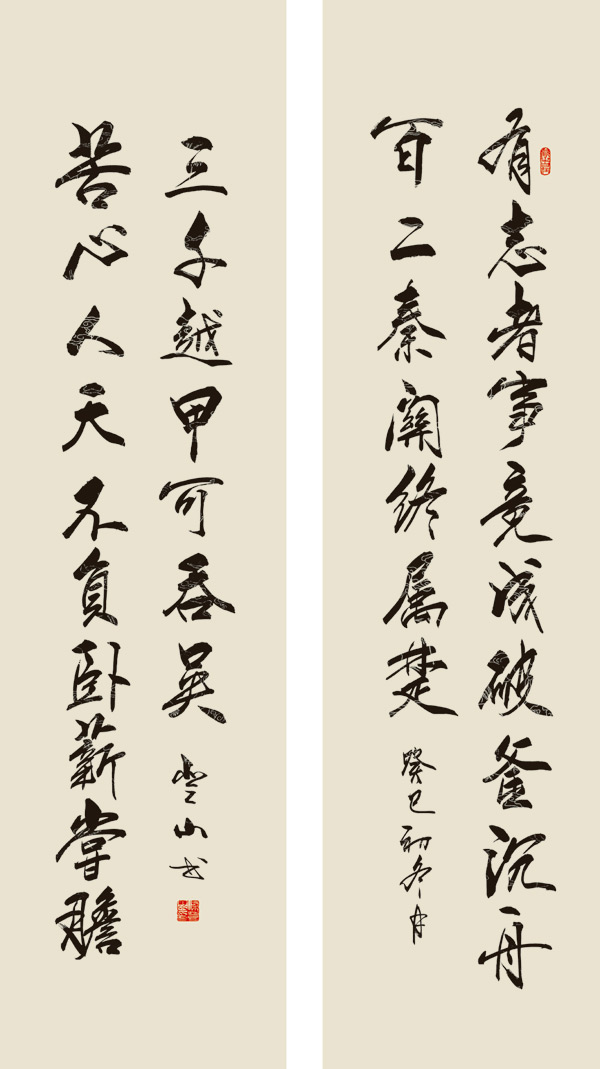 有志者事竟成破釜沉舟
百二秦關終属楚
癸巳初冬月
苦心人天不負卧薪嘗膽
三千越甲可吞吳